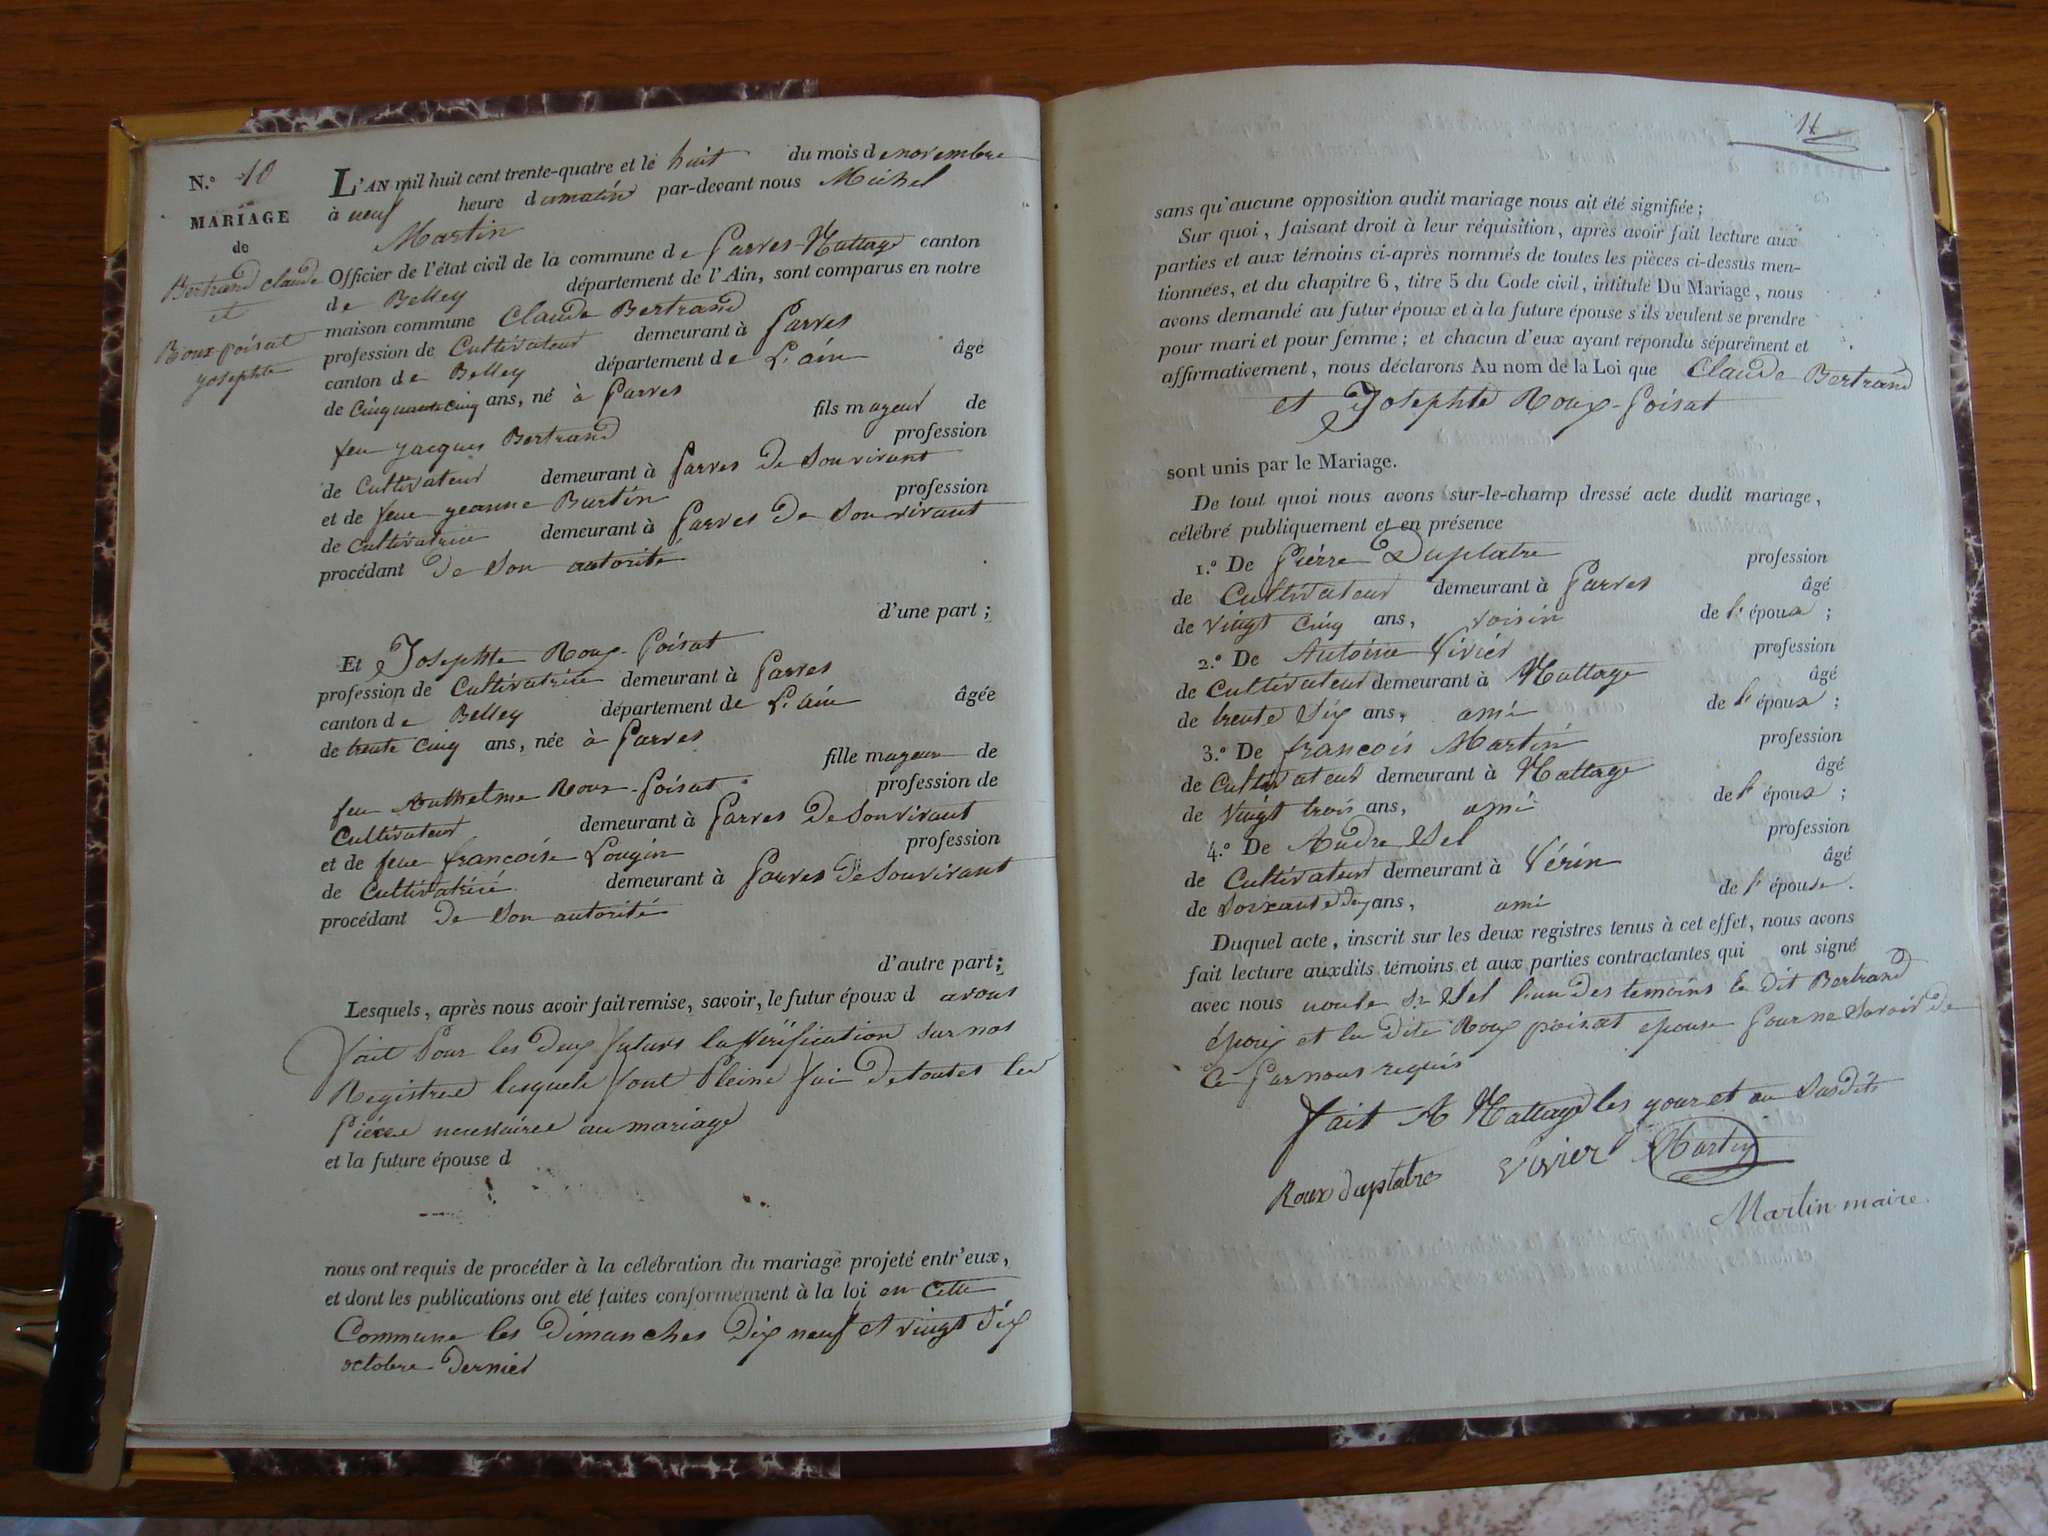 N.° 10
MARIAGE
de
Bertrand claude
et
Roux-poisat
josephte
L'AN mil huit cent trente-quatre et le huit du mois de novembre
à neuf heure du matin par-devant nous Michel
Martin
Officier de l'état civil de la commune de Parves-Nattage canton
de Belley département de l'Ain, sont comparus en notre
maison commune Claude Bertrand
profession de Cultivateur demeurant à Parves
canton de Belley département de L'ain âgé
de Cinquante Cinq ans, né à Parves
fils mageur de
feu jacques Bertrand profession
de Cultivateur demeurant à Parves De Son vivant
et de feue jeanne Burtin profession
de Cultivatrice demeurant à Parves De Son vivant
procédant De Son autorité
d'une part ;
Et Josephte Roux-Poisat
profession de Cultivatrice demeurant à Parves
canton de Belley département de L'ain âgée
de trente Cinq ans, née à Parves
fille mageure de
feu Anthelme Roux-Poisat profession de
Cultivateur demeurant à Parves De Son vivant
et de feue francoise Lougin profession
de Cultivatrice demeurant à Parves De Son vivant
procédant De Son autorité
d'autre part ;
Lesquels, après nous avoir fait remise, savoir, le futur époux d avons
fait Pour les Deux futurs la Vérification Sur nos
Registres lesquels font Pleine foi De toutes les
Pièces necessaires au mariage
et la future épouse d
nous ont requis de procéder à la célébration du mariage projeté entr'eux,
et dont les publications ont été faites conformément à la loi en Cette
Commune les Dimanches Dix neuf et vingt Six
octobre Dernier
11
sans qu'aucune opposition audit mariage nous ait été signifiée ;
Sur quoi, faisant droit à leur réquisition, après avoir fait lecture aux
parties et aux témoins ci-après nommés de toutes les pièces ci-dessus men-
tionnées, et du chapitre 6, titre 5 du Code civil, intitulé Du Mariage, nous
avons demandé au futur époux et à la future épouse s'ils veulent se prendre
pour mari et pour femme ; et chacun d'eux ayant répondu séparément et
affirmativement, nous déclarons Au nom de la Loi que Claude Bertrand
et Josephte Roux-Poisat
sont unis par le Mariage.
De tout quoi nous avons sur-le-champ dressé acte dudit mariage,
célébré publiquement et en présence
1.° De Pierre Duplatre profession
de Cultivateur demeurant à Parves âgé
de vingt Cinq ans, voisin de l'époux ;
2.° De Antoine Vivier profession
de Cultivateur demeurant à Nattage âgé
de trente Six ans, ami de l'époux ;
3.° De francois Martin profession
de Cultivateur demeurant à Nattage âgé
de Vingt trois ans, ami de l'époux ;
4.° De Andre Sel profession
de Cultivateur demeurant à Vérin âgé
de Soixante deux ans, ami de l'épouse.
Duquel acte, inscrit sur les deux registres tenus à cet effet, nous avons
fait lecture auxdits témoins et aux parties contractantes qui ont signé
avec nous non le Sr Sel l'un Des temoins le Dit Bertrand
époux et la Dite Roux poisat epouse Pour ne Savoir De
Ce Par nous requis
fait A Nattage les jour et an Susdits
Roux duplatre Vivier Martin
Martin maire